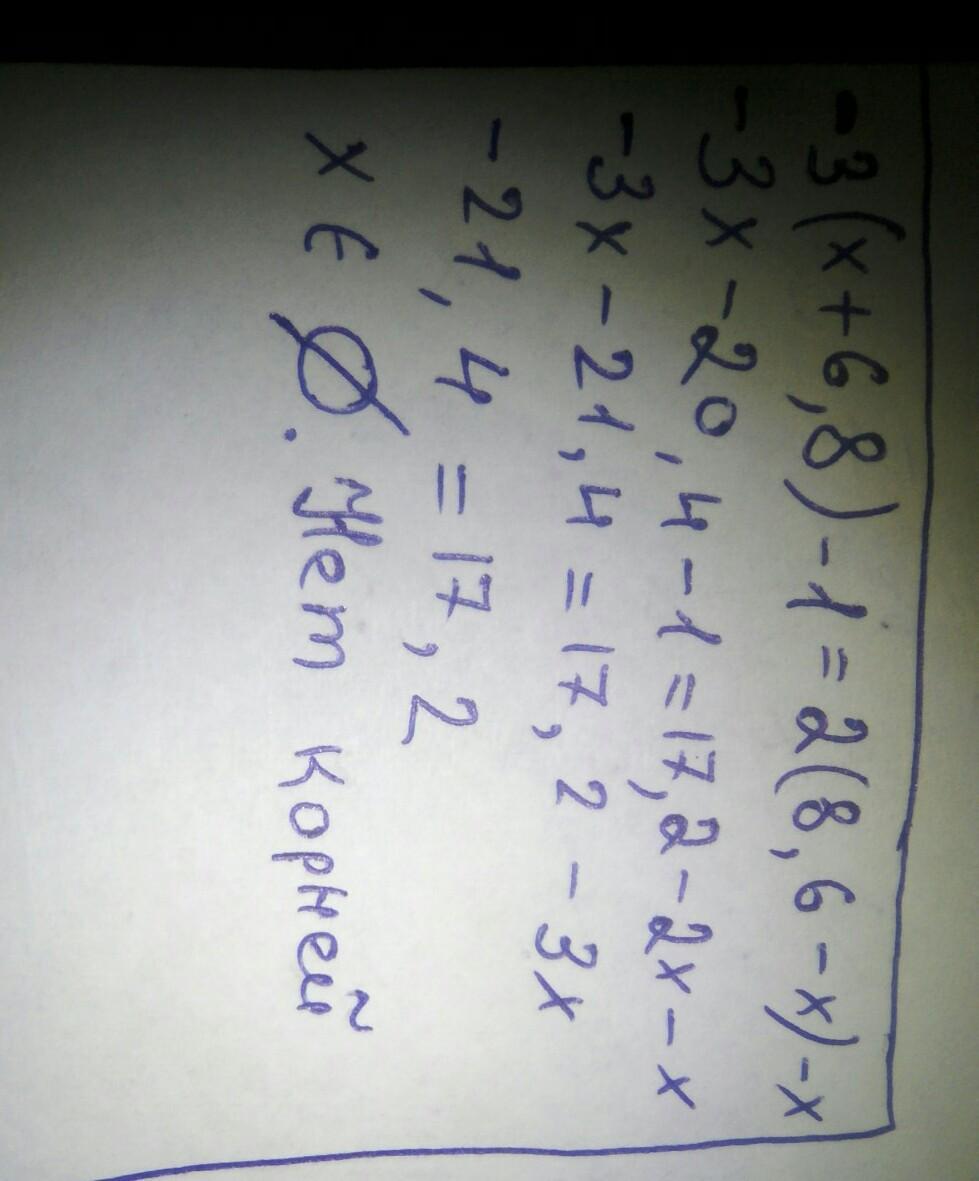 -3(x+6,8)-1=2(8,6-x)-x
-3x-20,4-1=17,2-2x-x
-3x-21,4=17,2-3x
-21,4=17,2
x ∈ Ø. Нет корней